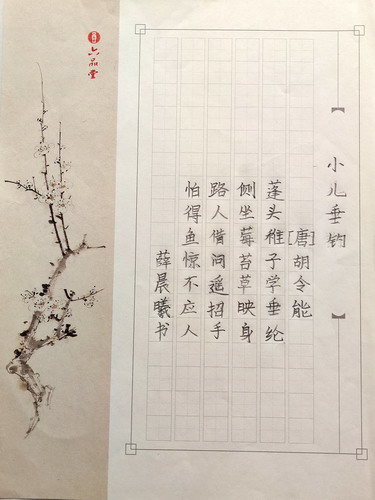 小儿垂钓
[唐]胡令能
蓬头稚子学垂纶
侧坐莓苔草映身
路人借问遥招手
怕得鱼惊不应人
薛晨曦书
六品堂